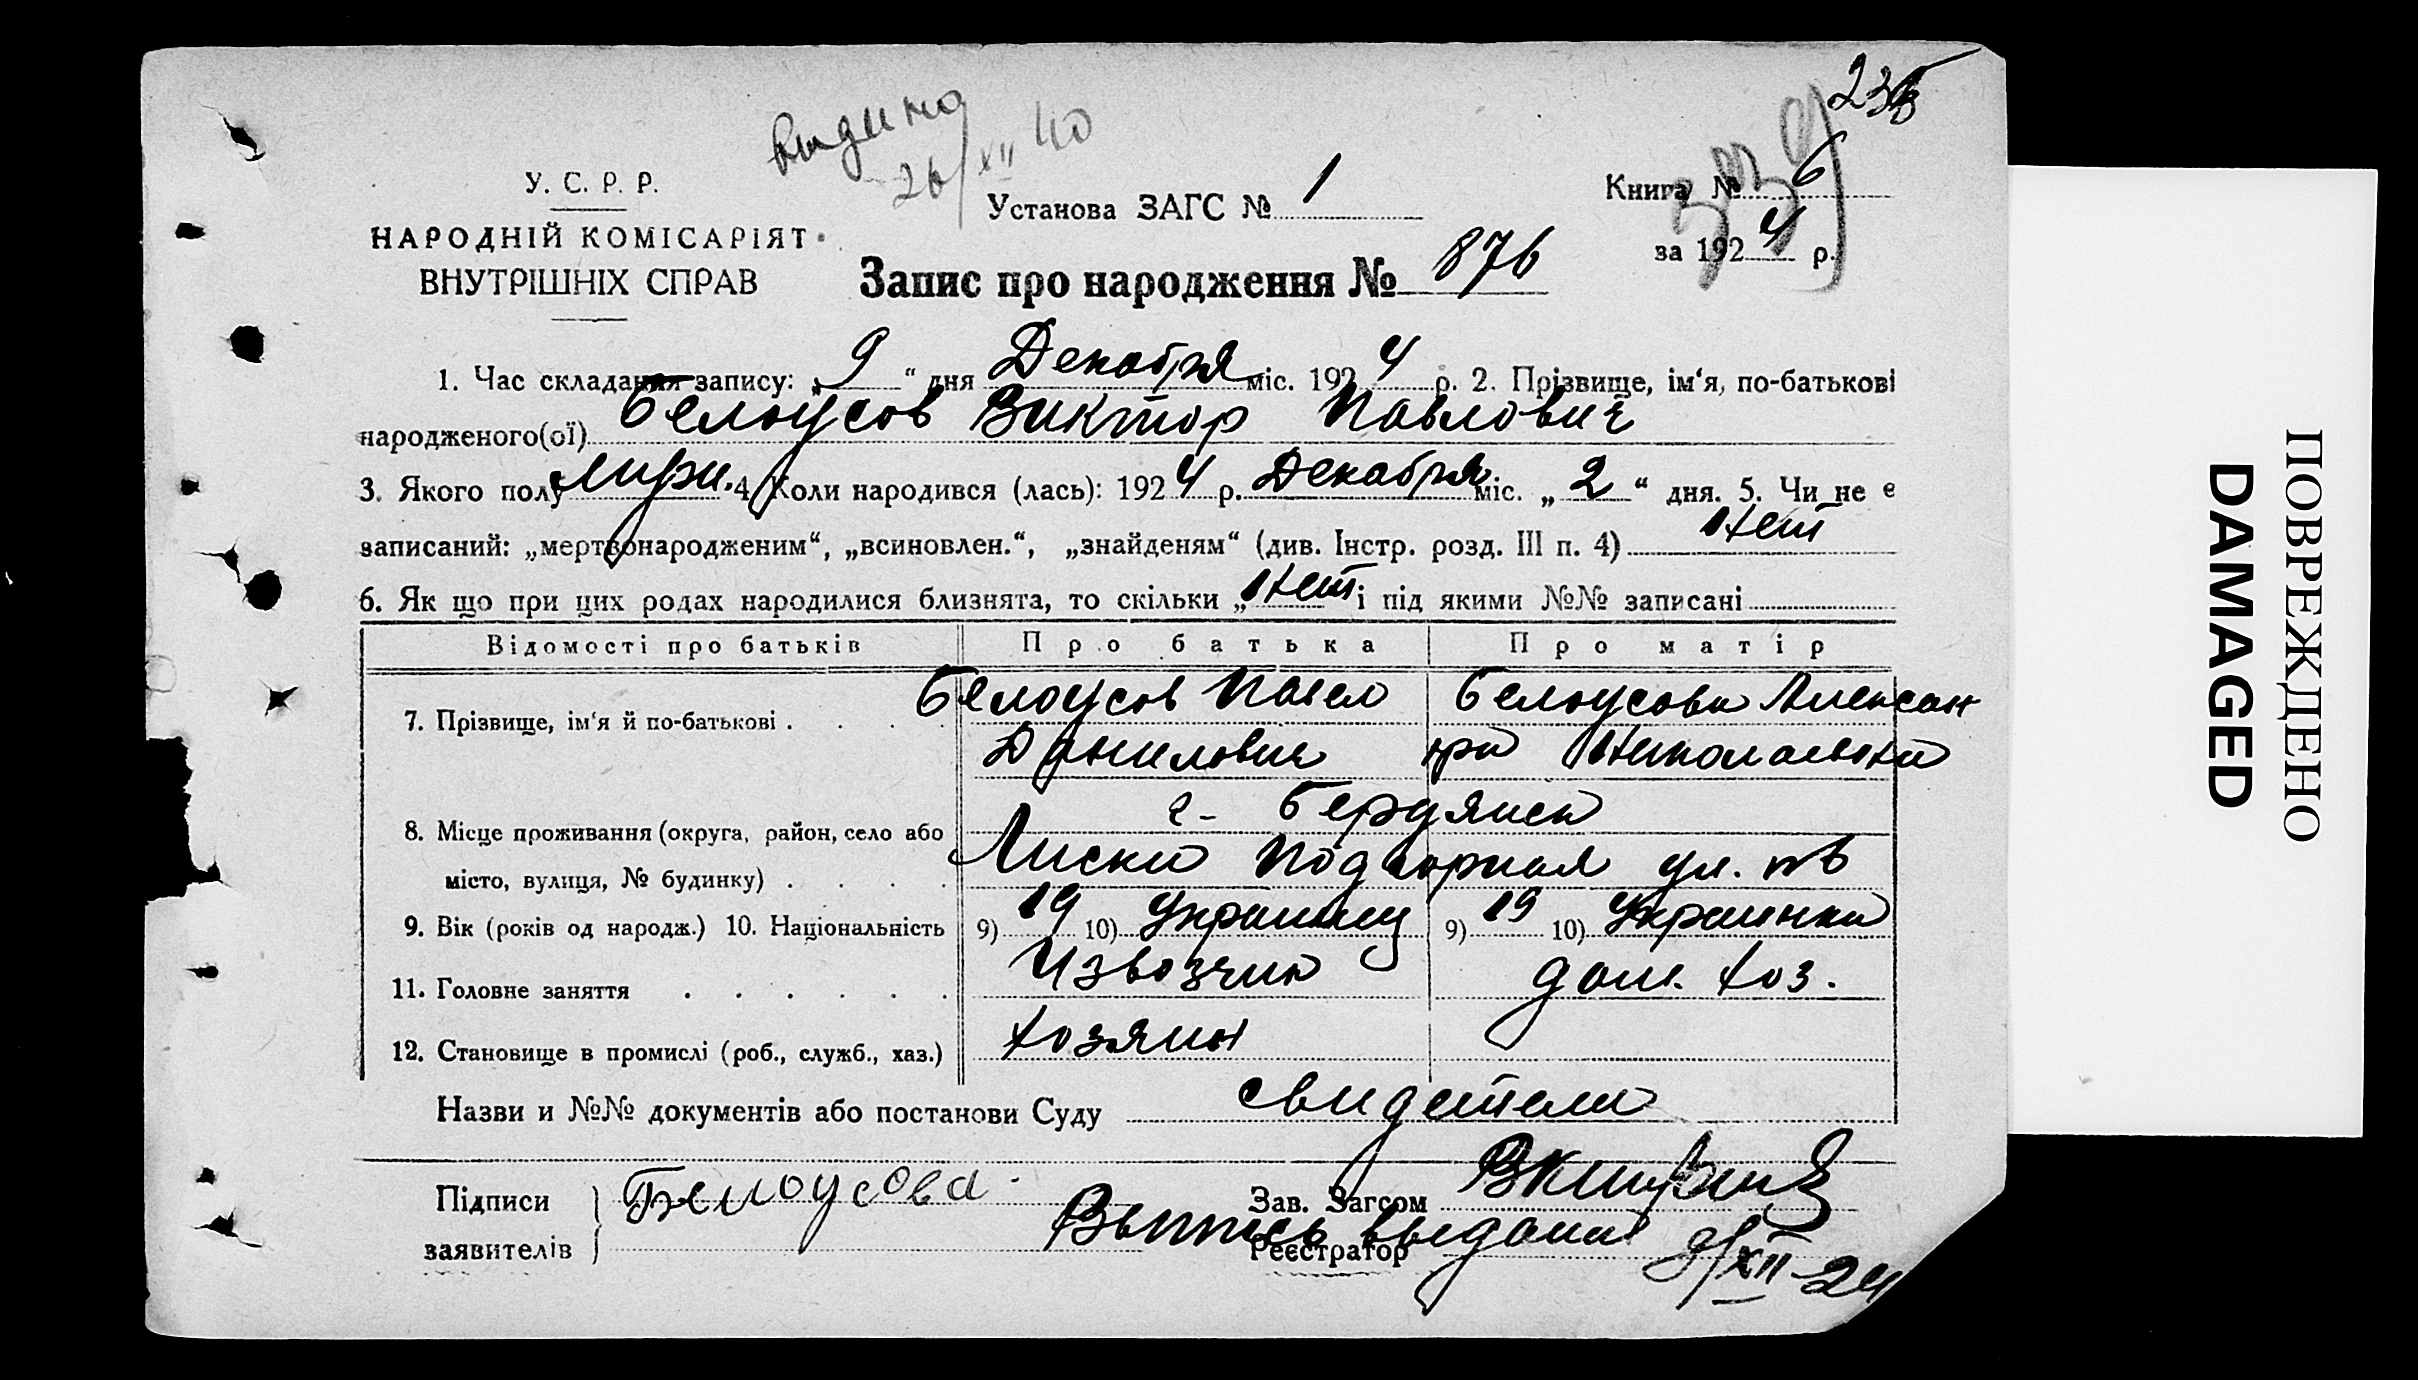 235
видано
26/XII 40
У. С. Р. Р.
НАРОДНІЙ КОМІСАРІЯТ
ВНУТРІШНІХ СПРАВ
Установа ЗАГС № 1
Книга № 6
за 1924 р.
Запис про народження № 876
1. Час складання запису: „9“ дня Декабря міс. 1924 р. 2. Прізвище, ім‘я, по-батькові
народженого(ої) Белоусов Виктор Павлович
3. Якого полу муж. 4. Коли народився (лась): 1924 р. Декабря міс. „2“ дня. 5. Чи не є
записаний: „мертвонародженим“, „всиновлен.“, „знайденям“ (див. Інстр. розд. III п. 4) Нет
6. Як що при цих родах народилися близнята, то скільки „Нет і під якими №№ записані
Відомості про батьків Про батька Про матір
7. Прізвище, ім‘я й по-батькові . . . . Белоусов Павел Белоусова Алексан
Данилович дра Николаевна
8. Місце проживання (округа, район, село або г. Бердянск
місто, вулиця, № будинку) . . . . Лиски Подгорная ул.
9. Вік (років од народж.) 10. Національність 9) 19 10) Украинец 9) 19 10) Украинка
11. Головне заняття . . . . . . Извозчик дом. хоз.
12. Становище в промислі (роб., служб., хаз.) хозяин
Назви и №№ документів або постанови Суду свидетели
Підписи
заявителів
Белоусова
Зав. Загсом
Реєстратор
Выпись выдана 9/XII-24
ПОВРЕЖДЕНО
DAMAGED